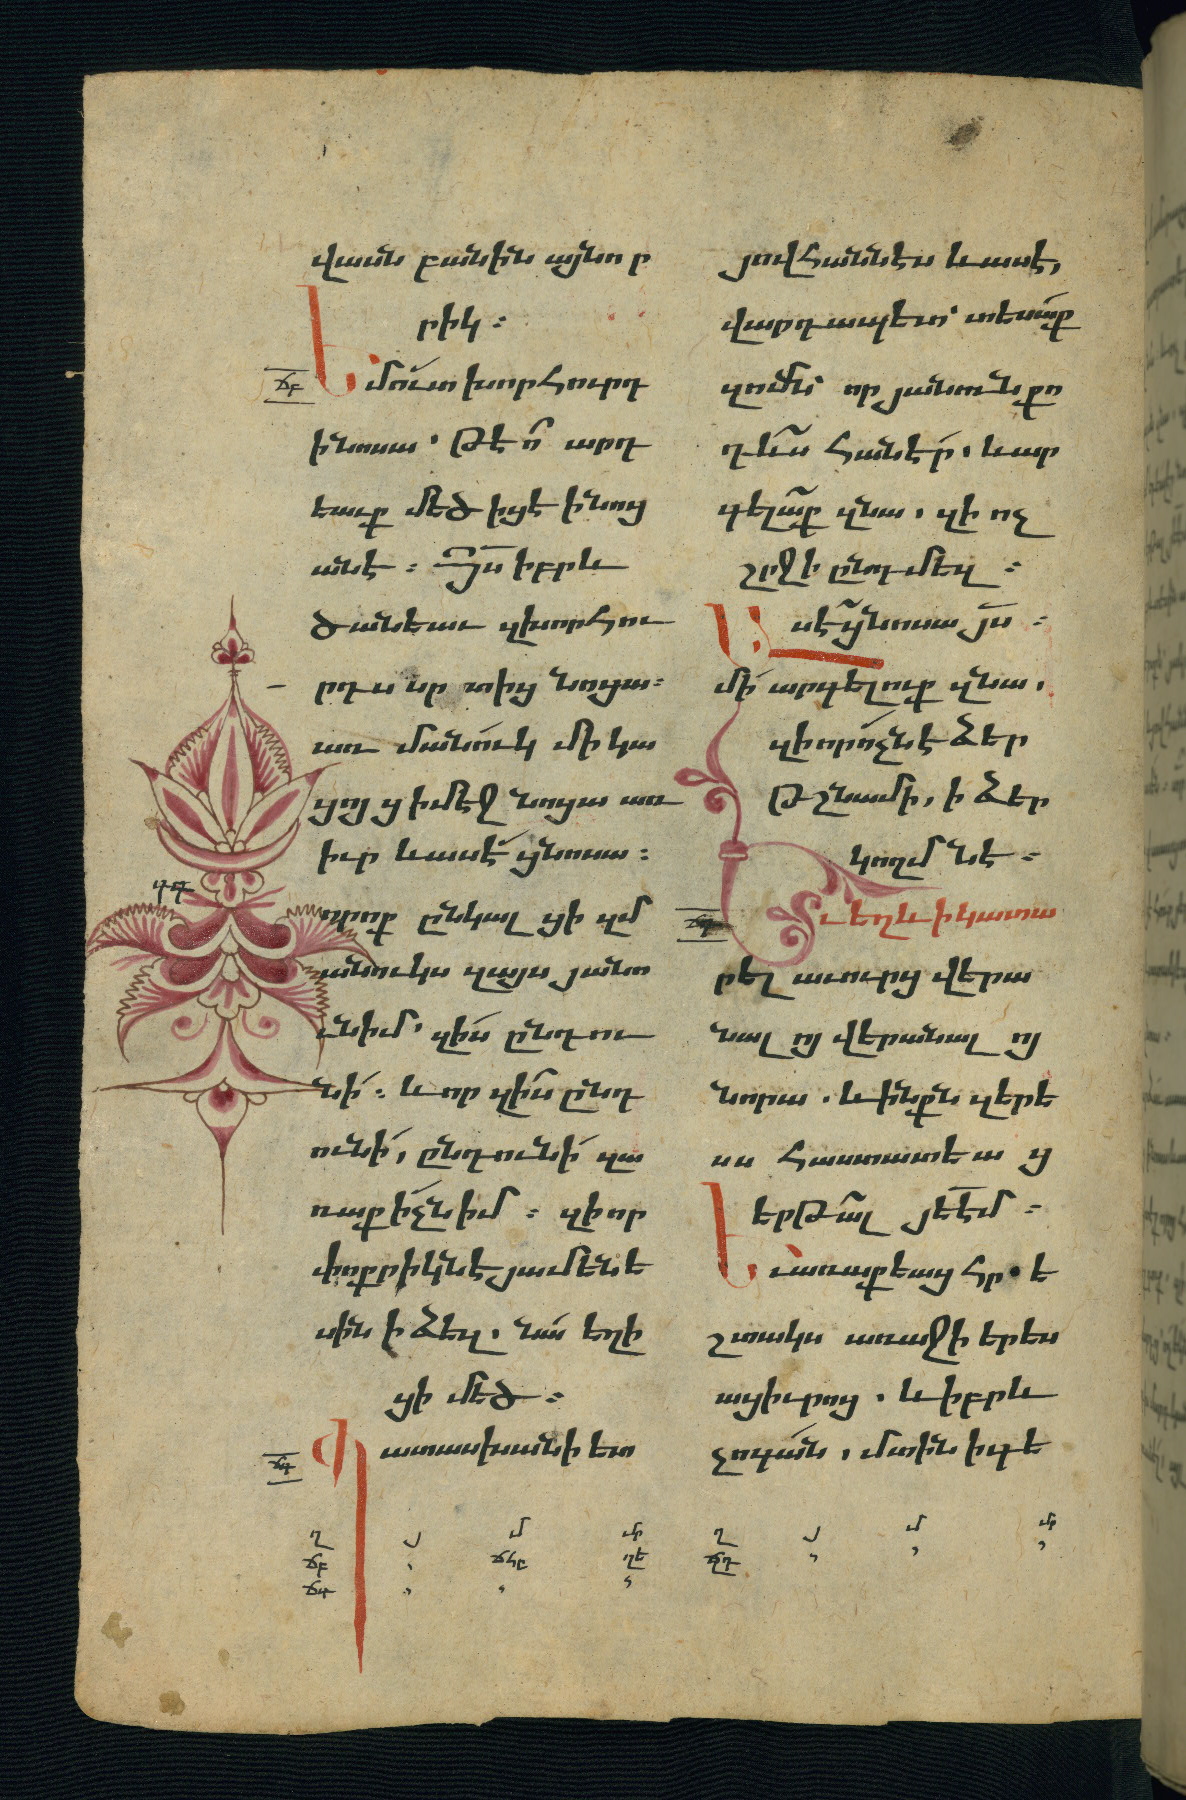 վասն բանին այնո ր
րիկ :
ճբ
Եմուտ խորհուրդ
ի նոսա ՝ թէ ո՞ արդ
եաւք մեծ իցէ ի նոց
անէ : Յս իբրև
ծանեաւ զխորհու
րդս սր տից նոցա :
առ մանուկ մի կա
ցոյց ի մէջ նոցա առ
իւր և ասէ ցնոսա :
որոք ընկալցի զմ
անուկս զայս յանո
ւն իմ ՝ զիս ընդու
նի : և որ զիս ընդ
ունի , ընդունի զա
ռաքիչն իմ : զի որ
փոքրիկն է յամենե
սին ի ձեզ . նա եղի
ցի մեծ :
ճգ
Պատասխանի ետ
յովհաննէս և ասէ,
վարդապետ՝ տեսաք
զոմն՝ որ յանուն քո
դևս հանէր . և ար
գելաք զնա . զի ոչ
շրջի ընդ մեզ :
Ասէ ցնոսա յս :
մի արգելուք զնա ,
զի որ ոչն է ձեր
թշնամի , ի ձեր
կողմն է :
Եւ եղև ի կատա
րել աւուրց վերա
նալ ոյ վերանալ ոյ
նորա . և ինքն զերե
սս հաստատեա ց
երթալ յեէմ :
Եւ առաքեաց հր ե
շտակս առաջի երես
աց իւրոց . և իբրև
չոգան , մտին ի գե
ղ յ մ մր ղ յ մ մր
ճբ ճհբ ղե ճդ
ճգ